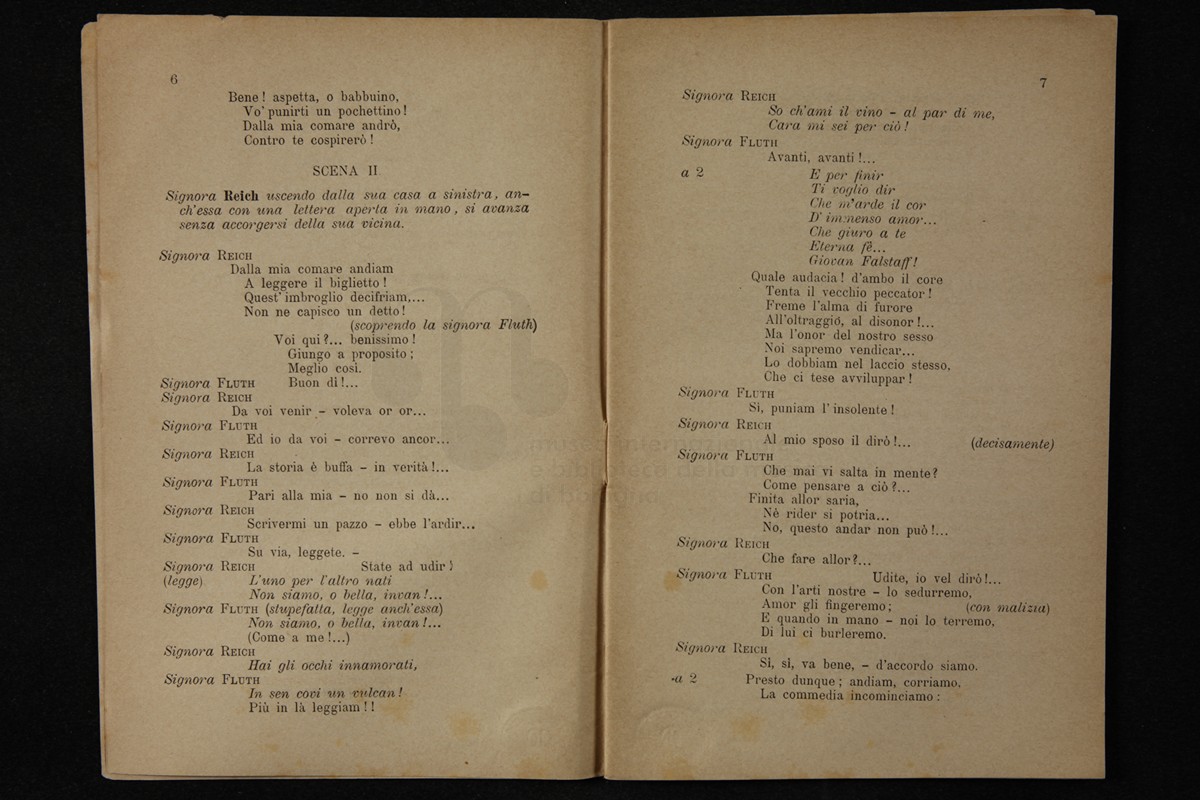 6
Bene! aspetta, o babbuino,
Vo' punirti un pochettino!
Dalla mia comare andrò,
Contro te cospirerò!
SCENA II
Signora Reich uscendo dalla sua casa a sinistra, an-
ch'essa con una lettera aperta in mano, si avanza
senza accorgersi della sua vicina.
Signora REICH
Dalla mia comare andiam
A leggere il biglietto!
Quest'imbroglio decifriam,...
Non ne capisco un detto!
(scoprendo la signora Fluth)
Voi qui?... benissimo!
Giungo a proposito;
Meglio così.
Signora FLUTH Buon dì!...
Signora REICH
Da voi venir - voleva or or...
Signora FLUTH
Ed io da voi - correvo ancor...
Signora REICH
La storia è buffa - in verità!...
Signora FLUTH
Pari alla mia - no non si dà...
Signora REICH
Scrivermi un pazzo - ebbe l'ardir...
Signora FLUTH
Su via, leggete. -
Signora REICH State ad udir!
(legge) L'uno per l'altro nati
Non siamo, o bella, invan!...
Signora FLUTH (stupefatta, legge anch'essa)
Non siamo, o bella, invan!...
(Come a me!...)
Signora REICH
Hai gli occhi innamorati,
Signora FLUTH
In sen covi un vulcan!
Più in là leggiam!!
7
Signora REICH
So ch'ami il vino - al par di me,
Cara mi sei per ciò!
Signora FLUTH
Avanti, avanti!...
a 2 E per finir
Ti voglio dir
Che m'arde il cor
D'immenso amor...
Che giuro a te
Eterna fê...
Giovan Falstaff!
Quale audacia! d'ambo il core
Tenta il vecchio peccator!
Freme l'alma di furore
All'oltraggio, al disonor!...
Ma l'onor del nostro sesso
Noi sapremo vendicar...
Lo dobbiam nel laccio stesso,
Che ci tese avviluppar!
Signora FLUTH
Sì, puniam l'insolente!
Signora REICH
Al mio sposo il dirò!... (decisamente)
Signora FLUTH
Che mai vi salta in mente?
Come pensare a ciò?...
Finita allor saria,
Nè rider si potria...
No, questo andar non può!...
Signora REICH
Che fare allor?...
Signora FLUTH Udite, io vel dirò!...
Con l'arti nostre - lo sedurremo,
Amor gli fingeremo; (con malizia)
E quando in mano - noi lo terremo,
Di lui ci burleremo.
Signora REICH
Sì, sì, va bene, - d'accordo siamo.
a 2 Presto dunque; andiam, corriamo,
La commedia incominciamo:
museo internazi
e biblioteca della
di bologna